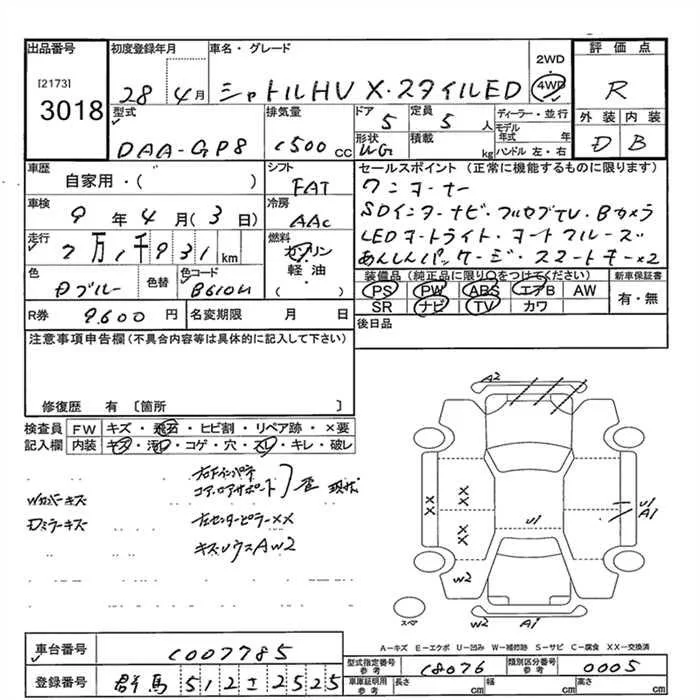 出品番号 初度登録年月 車名・グレード 2WD 評価点
[2173] 3018 28年4月 シャトルHV X・スタイルED 4WD R
型式 排気量 ドア 定員 ディーラー・並行 外装 内装
DAA-GP8 1500cc 5 5人 モデル年式 年 D B
形状 WG 積載 kg ハンドル 左・右
車歴 シフト セールスポイント(正常に機能するものに限ります)
自家用・( ) FAT ワンオーナー
車検 冷房 SDインターナビ・フルセグTV・Bカメラ
9年4月(3日) AAC LEDオートライト・オートクルーズ
走行 燃料 あんしんパッケージ・スマートキー×2
2万1千931km ガソリン 軽油 ( )
色 色替 色コード 装備品(純正品に限り○をつけてください) 新車保証書
Dブルー B610M PS PW ABS エアB AW 有・無
SR ナビ TV カワ
R券 9,600円 名変期限 月 日 後日品
注意事項申告欄(不具合内容等は具体的に記入して下さい)
修復歴 有〔箇所 〕
検査員 FW キズ・飛石・ヒビ割・リペア跡・×要
記入欄 内装 キズ・汚れ・コゲ・穴・スレ・キレ・破レ
コアロアサポート 歪 現状
Wカバーキズ
Dミラーキズ 左センターピラーXX
A2
U1
XX XX XX
U1 A1
W2
スペア W2 A1
A-キズ E-エクボ U-凹み W-補修跡 S-サビ C-腐食 XX-交換済
車台番号 1007785
型式指定番号 参考 18076 類別区分番号 参考 0005
登録番号 群馬 512 ± 2525
車庫証明用 参考 長さ cm 幅 cm 高さ cm